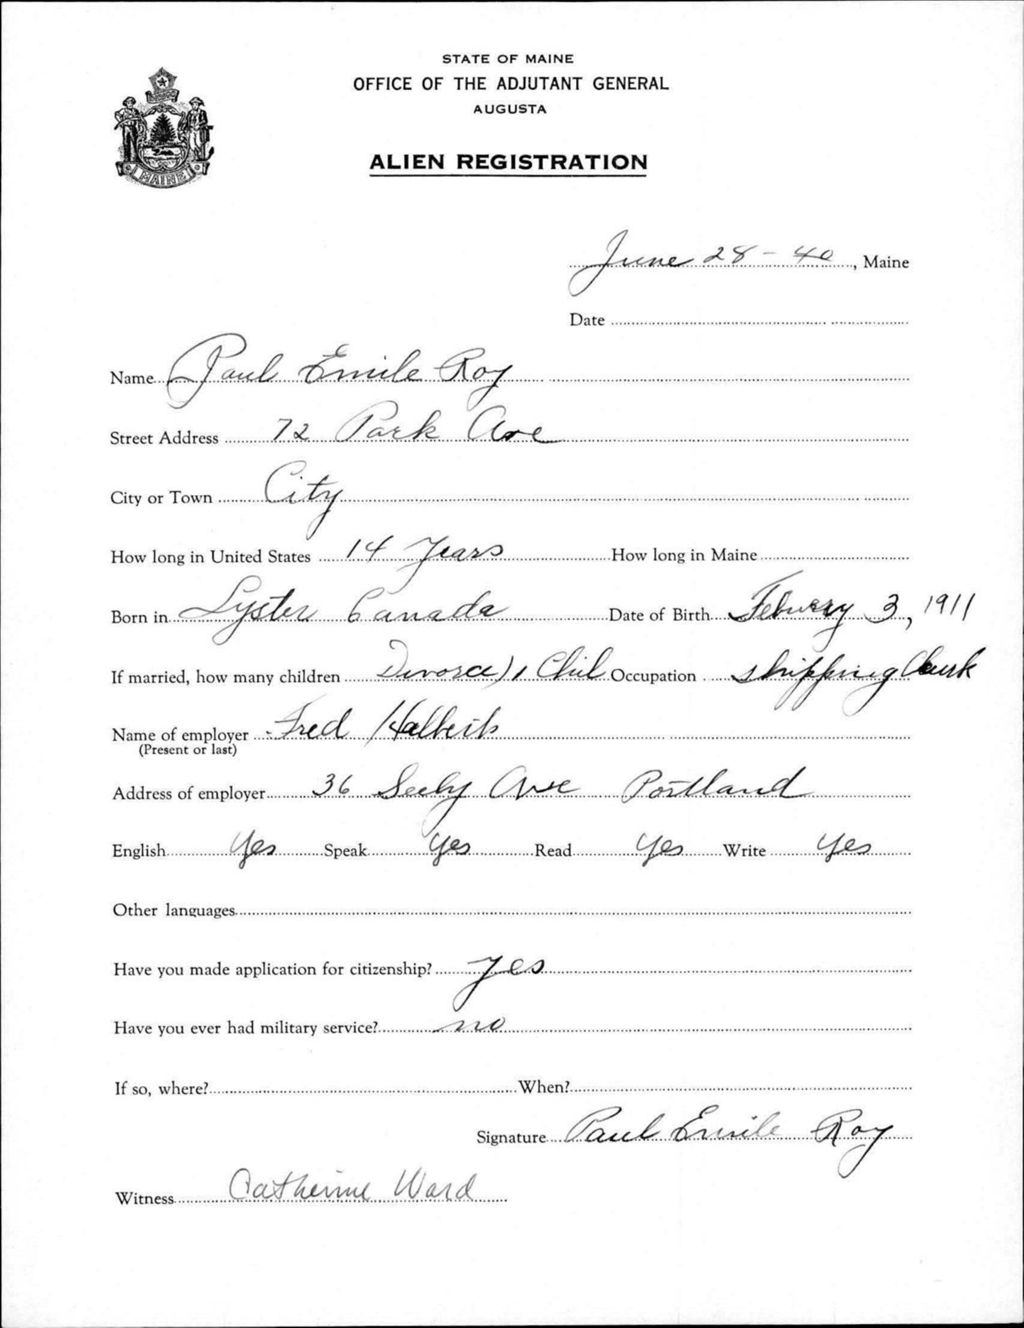 STATE OF MAINE
OFFICE OF THE ADJUTANT GENERAL
AUGUSTA
ALIEN REGISTRATION
MAINE
June 28 - 40, Maine
Date
Name Paul Emile Roy
Street Address 72 Park Ave
City or Town City
How long in United States 14 Years How long in Maine
Born in Lyster Canada Date of Birth 3, 1911
If married, how many children 1 Chil Occupation shipping Clerk
Name of employer Fred
(Present or last)
Address of employer 36 Ave Portland
English Yes Speak Yes Read Yes Write Yes
Other languages
Have you made application for citizenship? Yes
Have you ever had military service? no
If so, where? When?
Signature Paul Emile Roy
Witness Catherine Ward